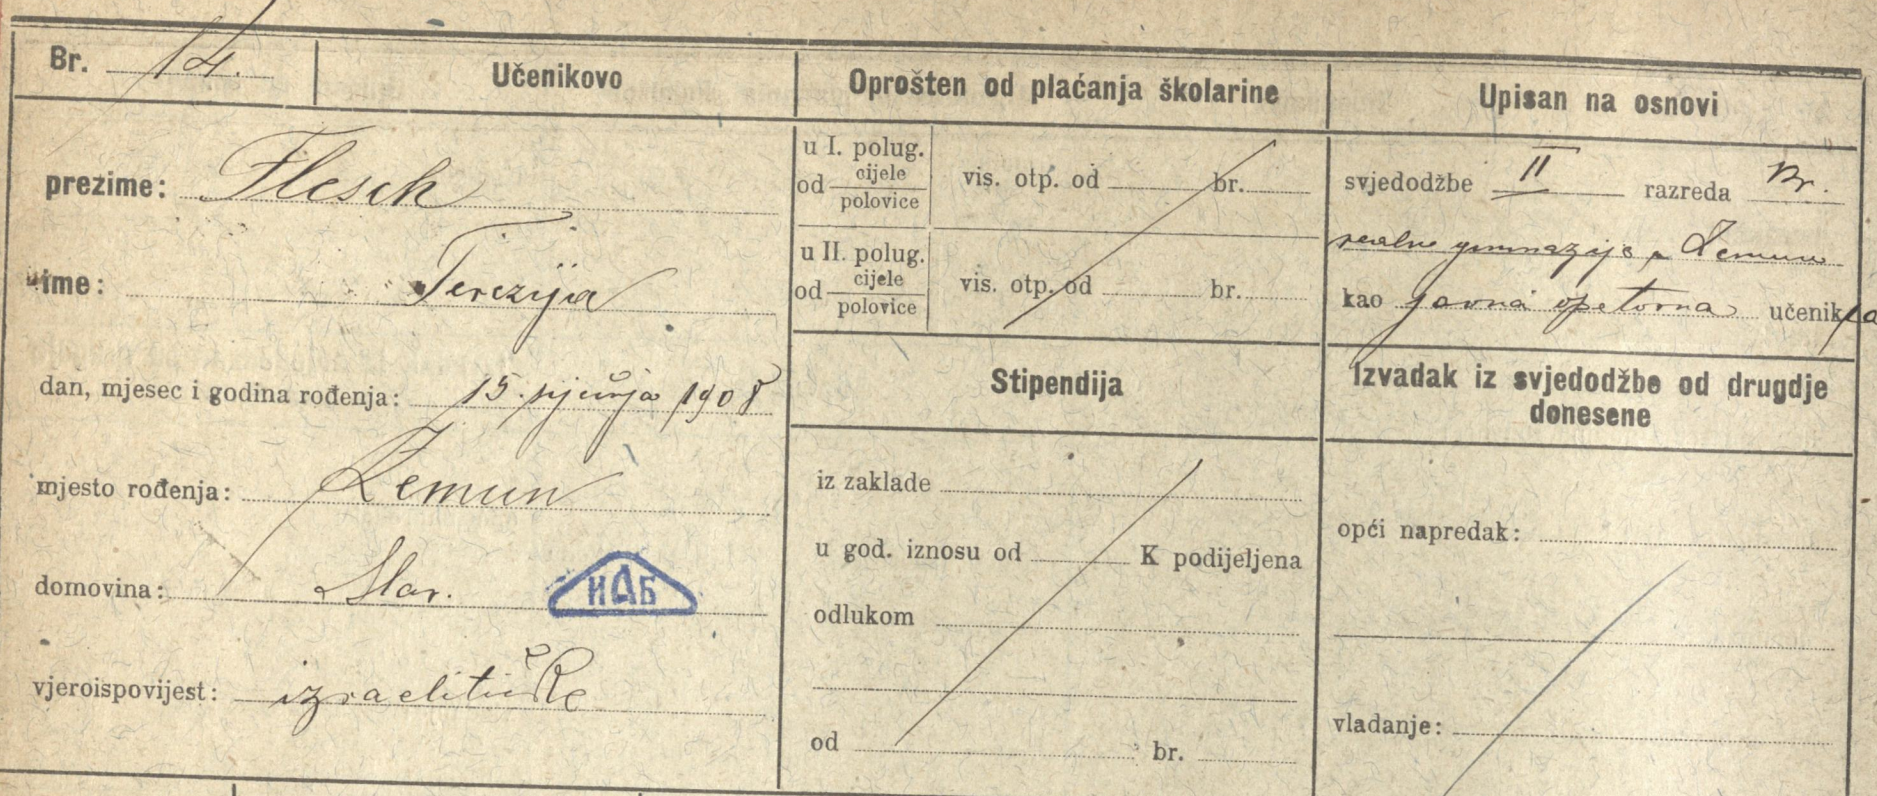 Br. 14.
Učenikovo
prezime: Flesch
ime: Terezija
dan, mjesec i godina rođenja: 15. siječnja 1908
mjesto rođenja: Zemun
domovina: Slav.
ИАБ
vjeroispovijest: izraelitičke
Oprošten od plaćanja školarine
u I. polug.
od cijele polovice vis. otp. od br.
u II. polug.
od cijele polovice vis. otp. od br.
Stipendija
iz zaklade
u god. iznosu od K podijeljena
odlukom
od br.
Upisan na osnovi
svjedodžbe II razreda Kr.
realne gimnazije u Zemunu
kao javna opetovna učenika
Izvadak iz svjedodžbe od drugdje
donesene
opći napredak:
vladanje: